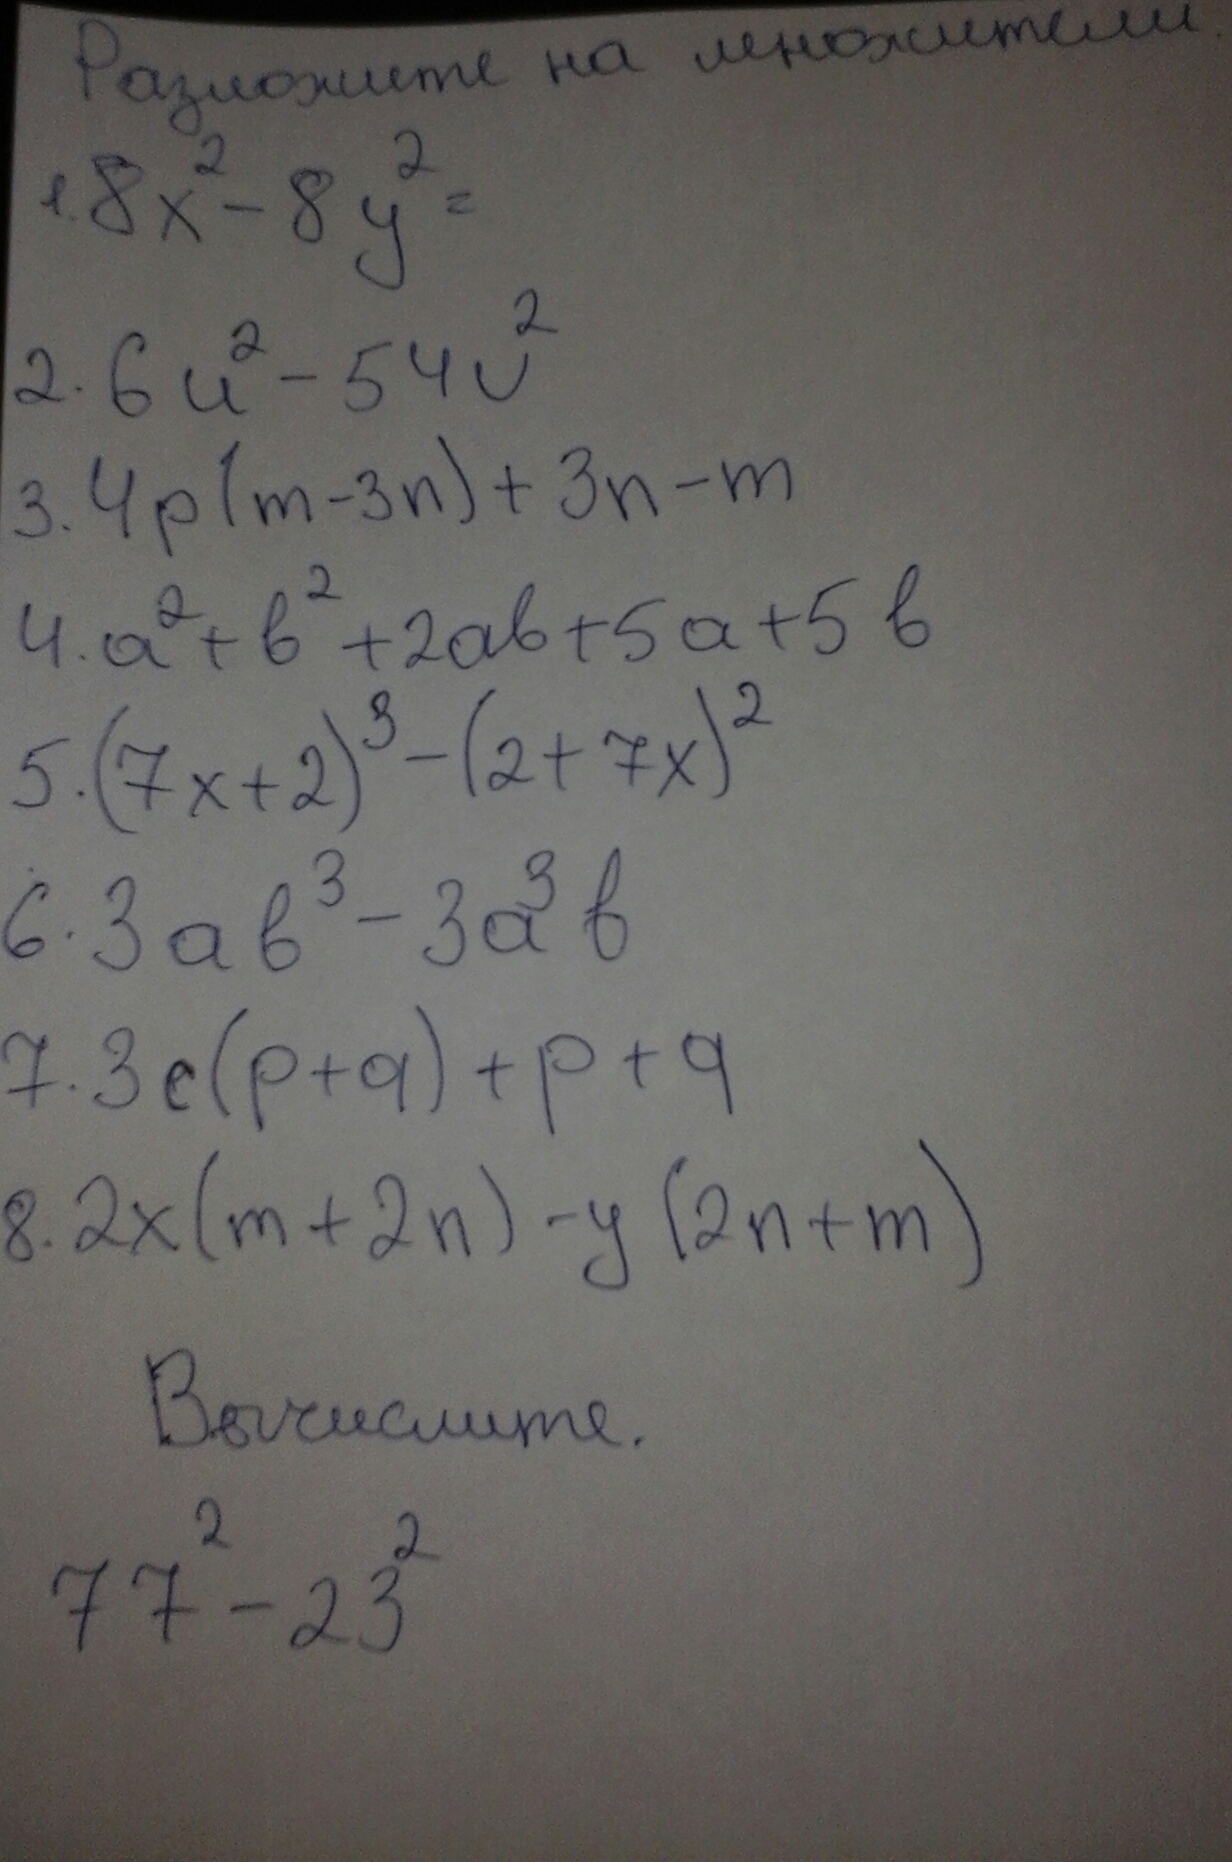 Разложите на множители.
1. 8x² - 8y² =
2. 6u² - 54v²
3. 4p(m-3n) + 3n - m
4. a² + b² + 2ab + 5a + 5b
5. (7x+2)³ - (2+7x)²
6. 3ab³ - 3a³b
7. 3c(p+q) + p + q
8. 2x(m+2n) - y(2n+m)
Вычислите.
77² - 23²